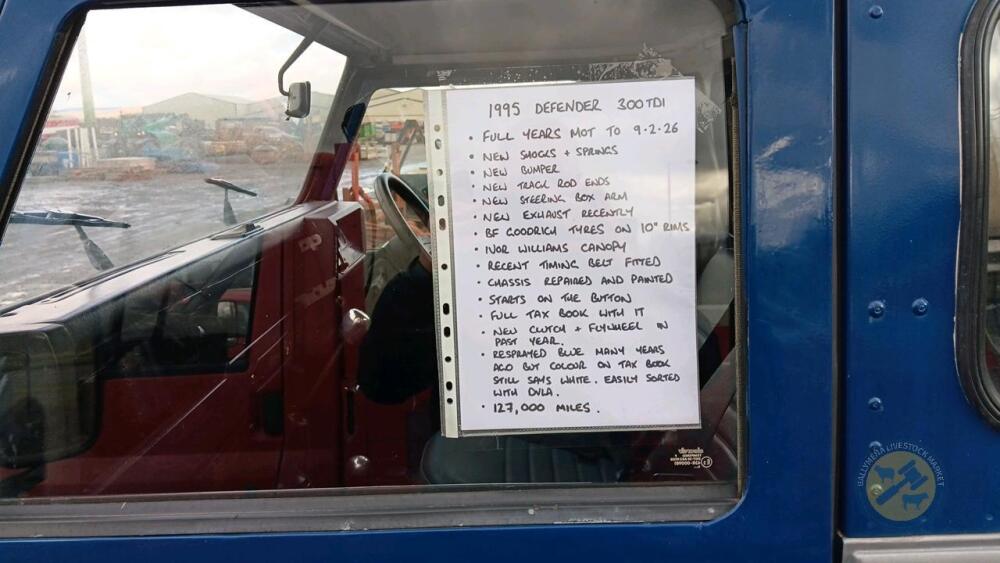 1995 DEFENDER 300TDI
• FULL YEARS MOT TO 9.2.26
• NEW SHOCKS + SPRINGS
• NEW BUMPER
• NEW TRACK ROD ENDS
• NEW STEERING BOX ARM
• NEW EXHAUST RECENTLY
• BF GOODRICH TYRES ON 10" RIMS
• IVOR WILLIAMS CANOPY
• RECENT TIMING BELT FITTED
• CHASSIS REPAIRED AND PAINTED
• STARTS ON THE BUTTON
• FULL TAX BOOK WITH IT
• NEW CLUTCH + FLYWHEEL IN
PAST YEAR.
• RESPRAYED BLUE MANY YEARS
AGO BUT COLOUR ON TAX BOOK
STILL SAYS WHITE. EASILY SORTED
WITH DVLA.
• 127,000 MILES.
BALLYMENA LIVESTOCK MARKET